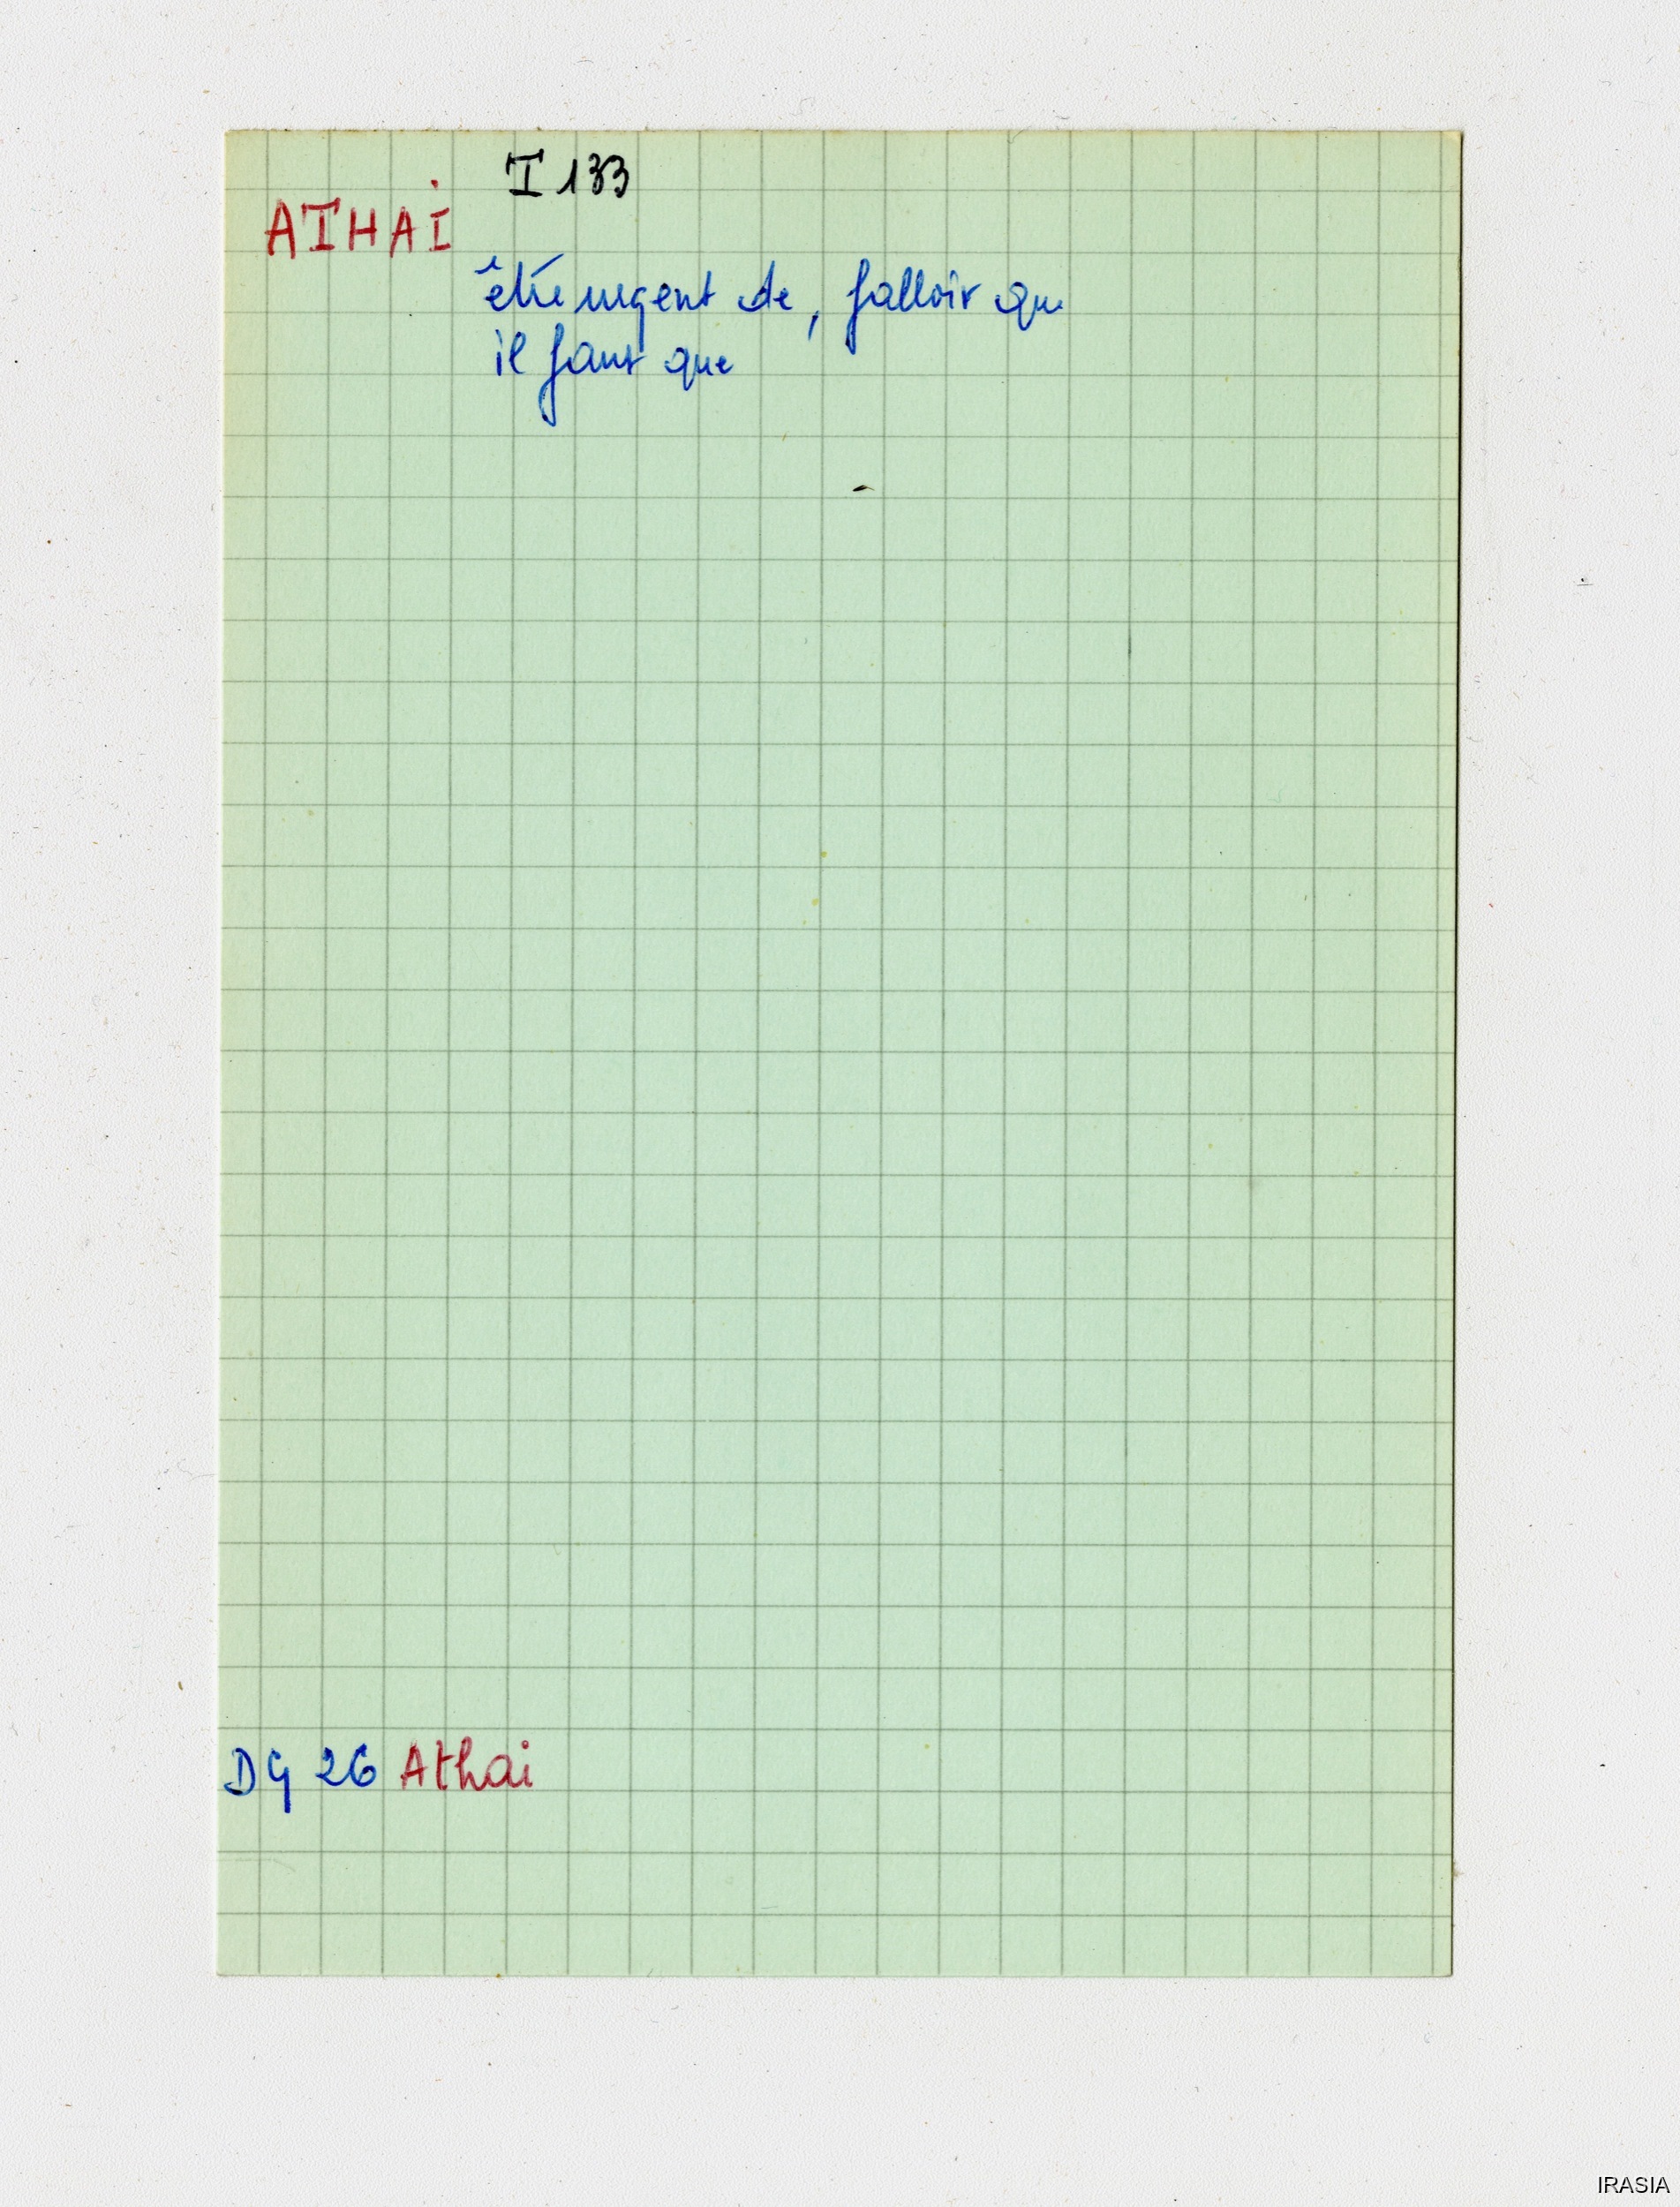 I 133
ATHAI
être urgent de, falloir que
il faut que
DG 26 Athai
IRASIA